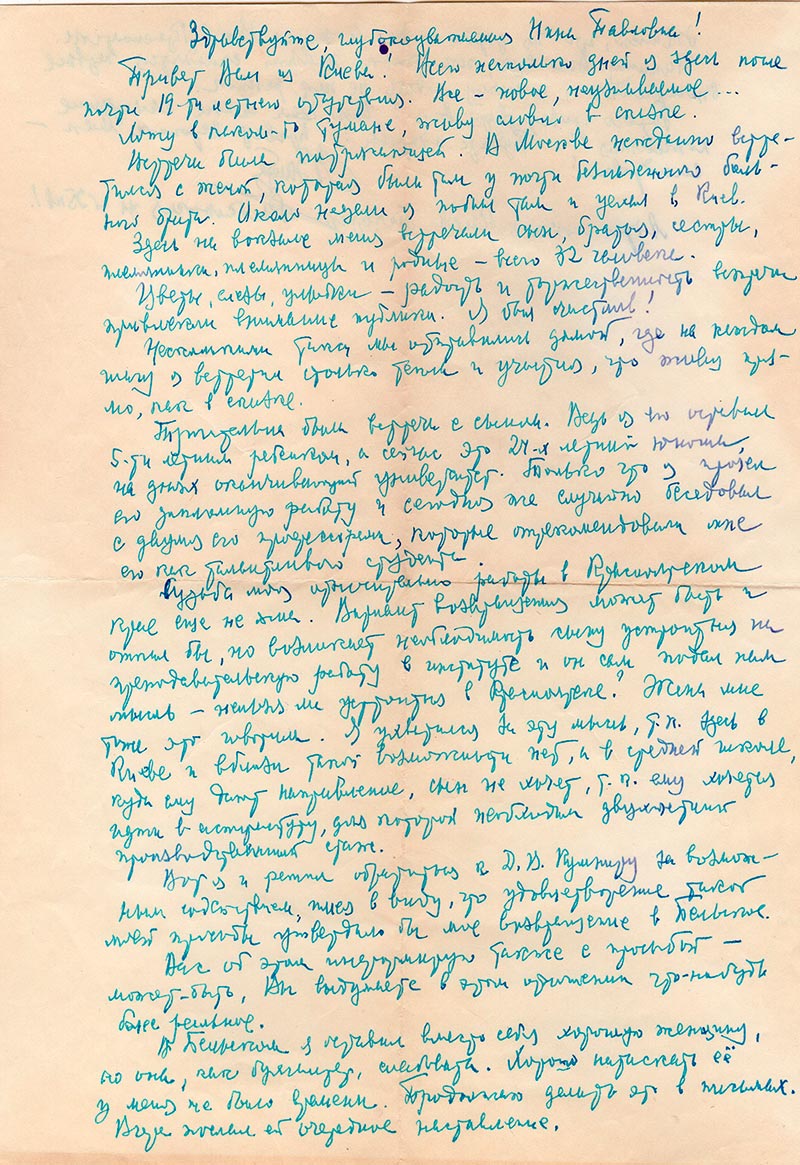 Здравствуйте, глубокоуважаемая Нина Павловна!
Привет Вам из Киева! Всего несколько дней я здесь после
почти 19-ти летнего отсутствия. Все – новое, неузнаваемое...
Хожу в каком-то тумане, живу словно в сказке.
Встречи были потрясающей. В Москве неожиданно встре-
тился с женой, которая была там у почти безнадежного боль-
ного брата. Около недели я побыл там и уехал в Киев.
Здесь на вокзале меня встречали сын, братья, сестры,
племянники, племянницы и родные – всего 32 человека.
Цветы, слезы, улыбки – радость и торжественность встречи
привлекали внимание публики. Я был счастлив!
Несколькими такси мы отправились домой, где на каждом
шагу я встретил столько тепла и участия, что живу пря-
мо, как в сказке.
Трогательна была встреча с сыном. Ведь я его оставил
5-ти летним ребенком, а сейчас это 24-х летний юноша,
на днях оканчивающий университет. Только что я прочел
его дипломную работу и сегодня же случайно беседовал
с двумя его профессорами, которые отрекомендовали мне
его как талантливого студента.
Судьба моя относительно работы в Красноярском
крае еще не ясна. Вариант возвращения может быть и
отпал бы, но возникает необходимость сыну устроиться на
преподавательскую работу в институте и он сам подал нам
мысль – нельзя ли устроиться в Красноярске? Жена мне
тоже это говорила. Я ухватился за эту мысль, т.к. здесь в
Киеве и вблизи такой возможности нет, а в средней школе,
куда ему дают направление, сын не хочет, т.к. ему хочется
идти в аспирантуру, для которой необходим двухлетний
производственный стаж.
Вот я и решил обратиться к Д.В. Кушниру за возмож-
ным содействием, имея в виду, что удовлетворение такой
моей просьбы утвердило бы мое возвращение в Бельское.
Вас об этом информирую также с просьбой –
может-быть, Вы выдумаете в этом отношении что-нибудь
более реальное.
В Бельском я оставил вместо себя хорошую женщину,
но она, как бухгалтер, слабовата. Хорошо натаскать её
у меня не было времени. Продолжаю делать это в письмах.
Вчера послал ей очередное наставление.